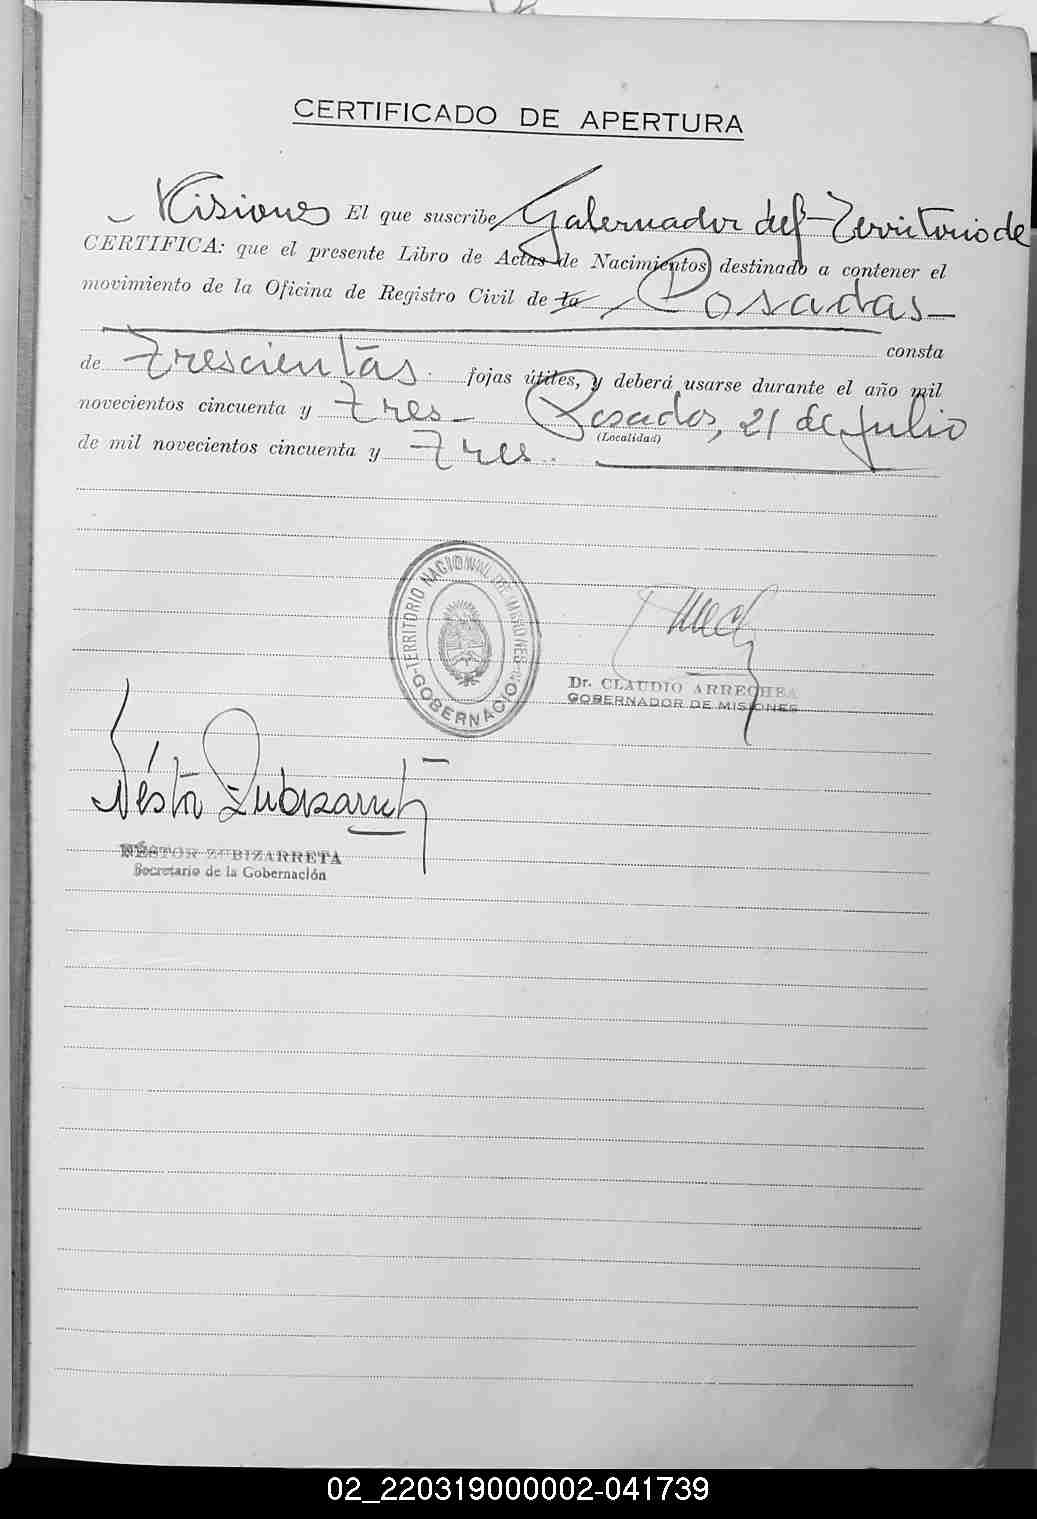 CERTIFICADO DE APERTURA
Misiones El que suscribe, Gobernador del Territorio de
CERTIFICA: que el presente Libro de Actas de Nacimientos destinado a contener el
movimiento de la Oficina de Registro Civil de la Posadas
consta
de Trescientas fojas útiles, y deberá usarse durante el año mil
novecientos cincuenta y tres Posadas, 21 de Julio
(Localidad)
de mil novecientos cincuenta y tres.
TERRITORIO NACIONAL DE MISIONES
GOBERNACIO
Dr. CLAUDIO ARRECHEA
GOBERNADOR DE MISIONES
Néstor Zubizarreta
NÉSTOR ZUBIZARRETA
Secretario de la Gobernación
02_220319000002-041739